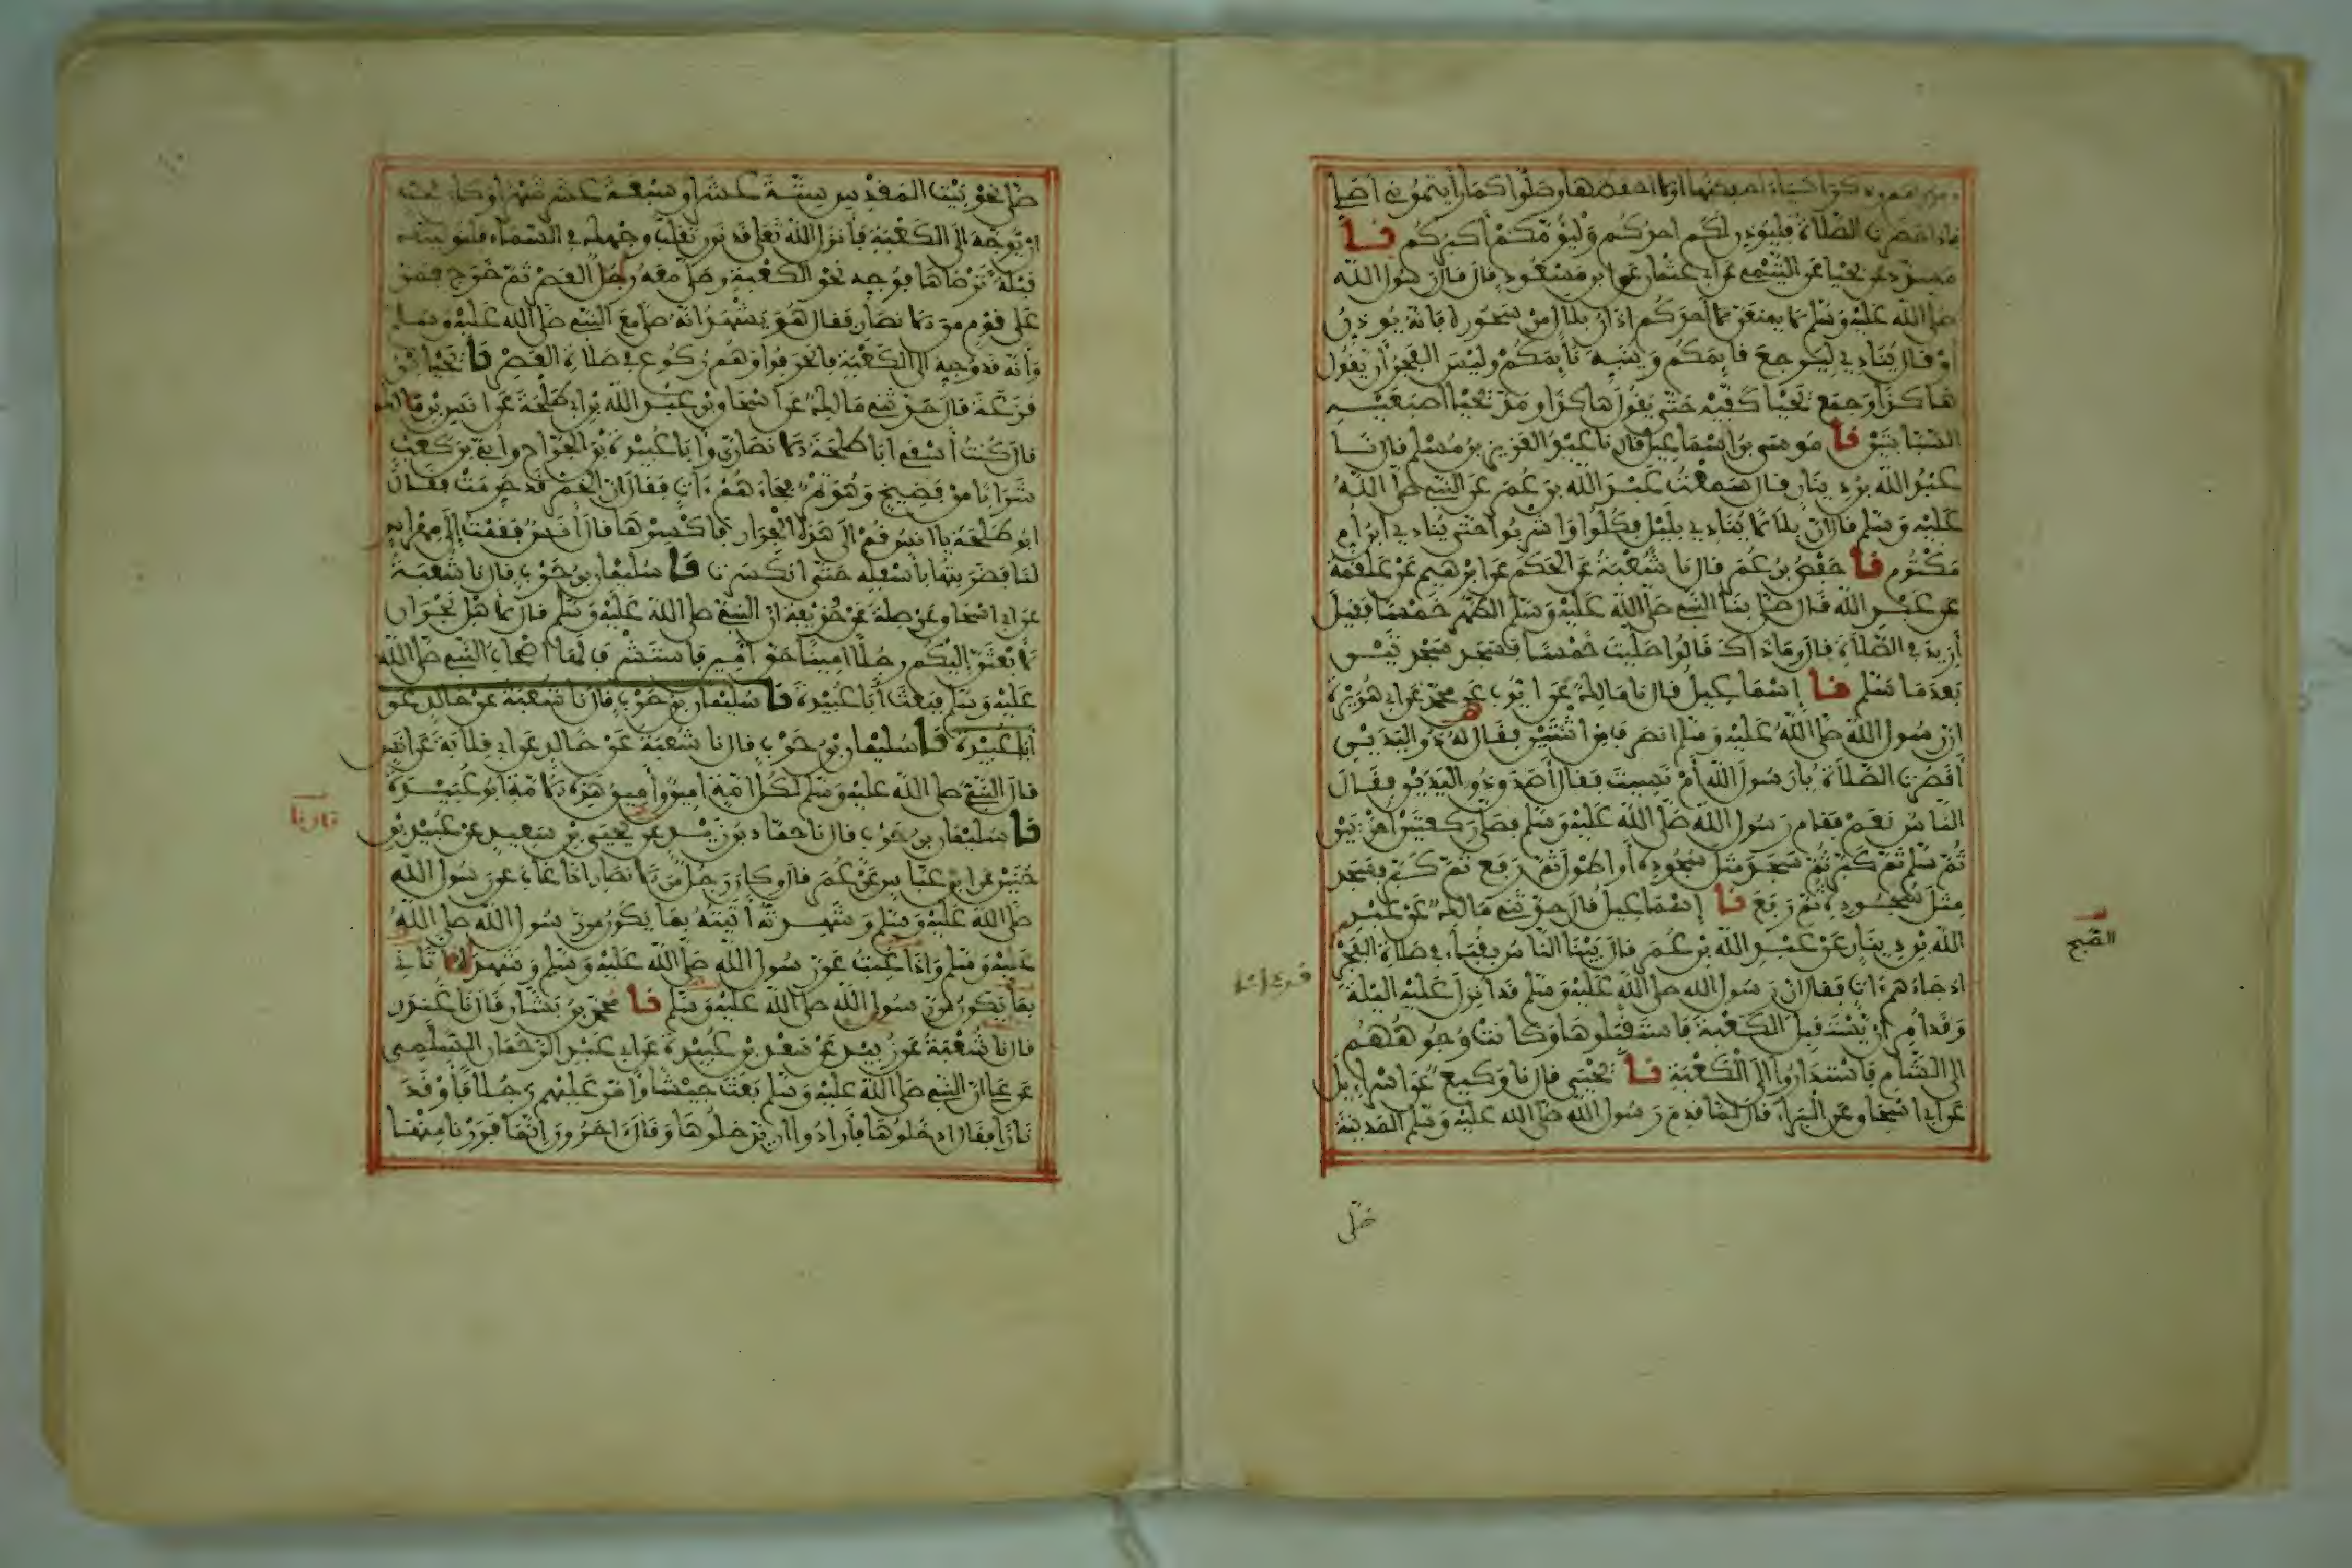 ومروهم وذكر أشياء أحفظها أو لا أحفظها وصلوا كما رأيتموني أصلي
فإذا حضرت الصلاة فليوذن لكم احدكم وليؤمكم أكبركم نا
مسدد عن يحيا عن التيمي عن ابي عثمان عن ابن مسعود قال قال رسول الله
صلى الله عليه وسلم لا يمنعن احدكم اذان بلال من سحوره فانه يوذن
أو قال ينادي ليرجع قايمكم وينبه نايمكم وليس الفجر أن يقول
هاكذا وجمع يحيا كفيه حتى يقول هاكذا ومد يحيا اصبعيه
السبابتين نا موسى بن اسماعيل قال نا عبد العزيز بن مسلم قال نا
عبد الله بن دينار قال سمعت عبد الله بن عمر عن النبي صلى الله
عليه وسلم قال ان بلالا ينادي بليل فكلوا واشربوا حتى ينادي ابن أم
مكتوم نا حفص بن عمر قال نا شعبة عن الحكم عن ابرهيم عن علقمة
عن عبد الله قال صلى بنا النبي صلى الله عليه وسلم الظهر خمسا فقيل
أزيد في الصلاة قال وما ذاك قالوا صليت خمسا فسجد سجدتين
بعدما سلم نا إسماعيل قال نا مالك عن ايوب عن محمد عن ابي هريرة
ان رسول الله صلى الله عليه وسلم انصرف من اثنتين فقال له ذو اليدين
أقصرت الصلاة يا رسول الله أم نسيت فقال أصدق ذو اليدين فقال
الناس نعم فقام رسول الله صلى الله عليه وسلم فصلى ركعتين اخريين
ثم سلم ثم كبر ثم سجد مثل سجوده أو اطول ثم رفع ثم كبر فسجد
مثل سجوده ثم رفع نا إسماعيل قال حدثني مالك عن عبد
الله بن دينار عن عبد الله بن عمر قال بينا الناس بقباء في صلاة الفجر
اذ جاءهم ءات فقال ان رسول الله صلى الله عليه وسلم قد انزل عليه الليلة
وقد امر ان يستقبل الكعبة فاستقبلوها وكانت وجوههم
الى الشام فاستداروا الى الكعبة نا يحيى قال نا وكيع عن اسراءيل
عن ابي اسحاق عن البراء قال لما قدم رسول الله صلى الله عليه وسلم المدينة
الصبح
صلى
صلى نحو بيت المقدس ستة عشر او سبعة عشر شهرا وكان يحب
ان يوجه الى الكعبة فأنزل الله تعلى قد نرى تقلب وجهك في السماء فلنولينك
قبلة ترضاها فوجه نحو الكعبة وصلى معه رجل العصر ثم خرج فمر
على قوم من الانصار فقال هو يشهد انه صلى مع النبي صلى الله عليه وسلم
وأنه قد وجه الى الكعبة فانحرفوا وهم ركوع في صلاة العصر نا يحيا بن
قزعة قال حدثني مالك عن اسحاق بن عبد الله بن ابي طلحة عن انس بن مالك
قال كنت أسقي ابا طلحة الانصاري وأبا عبيدة بن الجراح وأبي بن كعب
شرابا من فضيخ وهو تمر فجاءهم ءات فقال ان الخمر قد حرمت فقال
ابو طلحة يا انس قم الى هذه الجرار فاكسرها قال أنس فقمت إلى مهراس
لنا فضربتها بأسفله حتى انكسرت نا سليمان بن حرب قال نا شعبة
عن ابي اسحاق عن صلة عن حذيفة ان النبي صلى الله عليه وسلم قال لاهل نجران
لابعثن إليكم رجلا امينا حق امين فاستشرف لها أصحاب النبي صلى الله
عليه وسلم فبعث أبا عبيدة نا سليمان بن حرب قال نا شعبة عن خالد عن
أبا عبيدة نا سليمان بن حرب قال نا شعبة عن خالد عن ابي قلابة عن انس
قال النبي صلى الله عليه وسلم لكل امة امين وأمين هذه الامة ابو عبيدة
نا سليمان بن حرب قال نا حماد بن زيد عن يحيى بن سعيد عن عبيد بن
حنين عن ابن عباس عن عمر قال وكان رجل من الانصار اذا غاب عن رسول الله
صلى الله عليه وسلم وشهدته أتيته بما يكون من رسول الله صلى الله
عليه وسلم وإذا غبت عن رسول الله صلى الله عليه وسلم وشهد أتاني
بما يكون من رسول الله صلى الله عليه وسلم نا محمد بن بشار قال نا غندر
قال نا شعبة عن زبيد عن سعد بن عبيدة عن ابي عبد الرحمان السلمي
عن علي ان النبي صلى الله عليه وسلم بعث جيشا وأمر عليهم رجلا فأوقد
نارا فقال ادخلوها فأرادوا ان يدخلوها وقال ءاخرون انما فررنا منها
قال نا